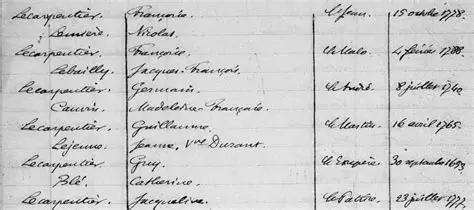 Lecarpentier. Françoise St Jean 15 octobre 1778.
Nicolas
Lecarpentier. Françoise St Malo 4 février 1788.
Lebailly. Jacques-François
Lecarpentier. Germain St André 8 juillet 1740
Cauvin Madeleine-Française
Lecarpentier. Guillaume St Martin 16 avril 1765.
Lejeune. Jeanne, Vve Durant
Lecarpentier. Guy St Exupère 30 septembre 1693
Blé Catherine
Lecarpentier. Jacqueline St Patrice 23 juillet